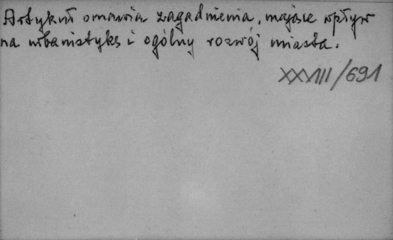 Artykuł omawia zagadnienia, mające wpływ
na urbanistykę i ogólny rozwój miasta.
XXVIII/691